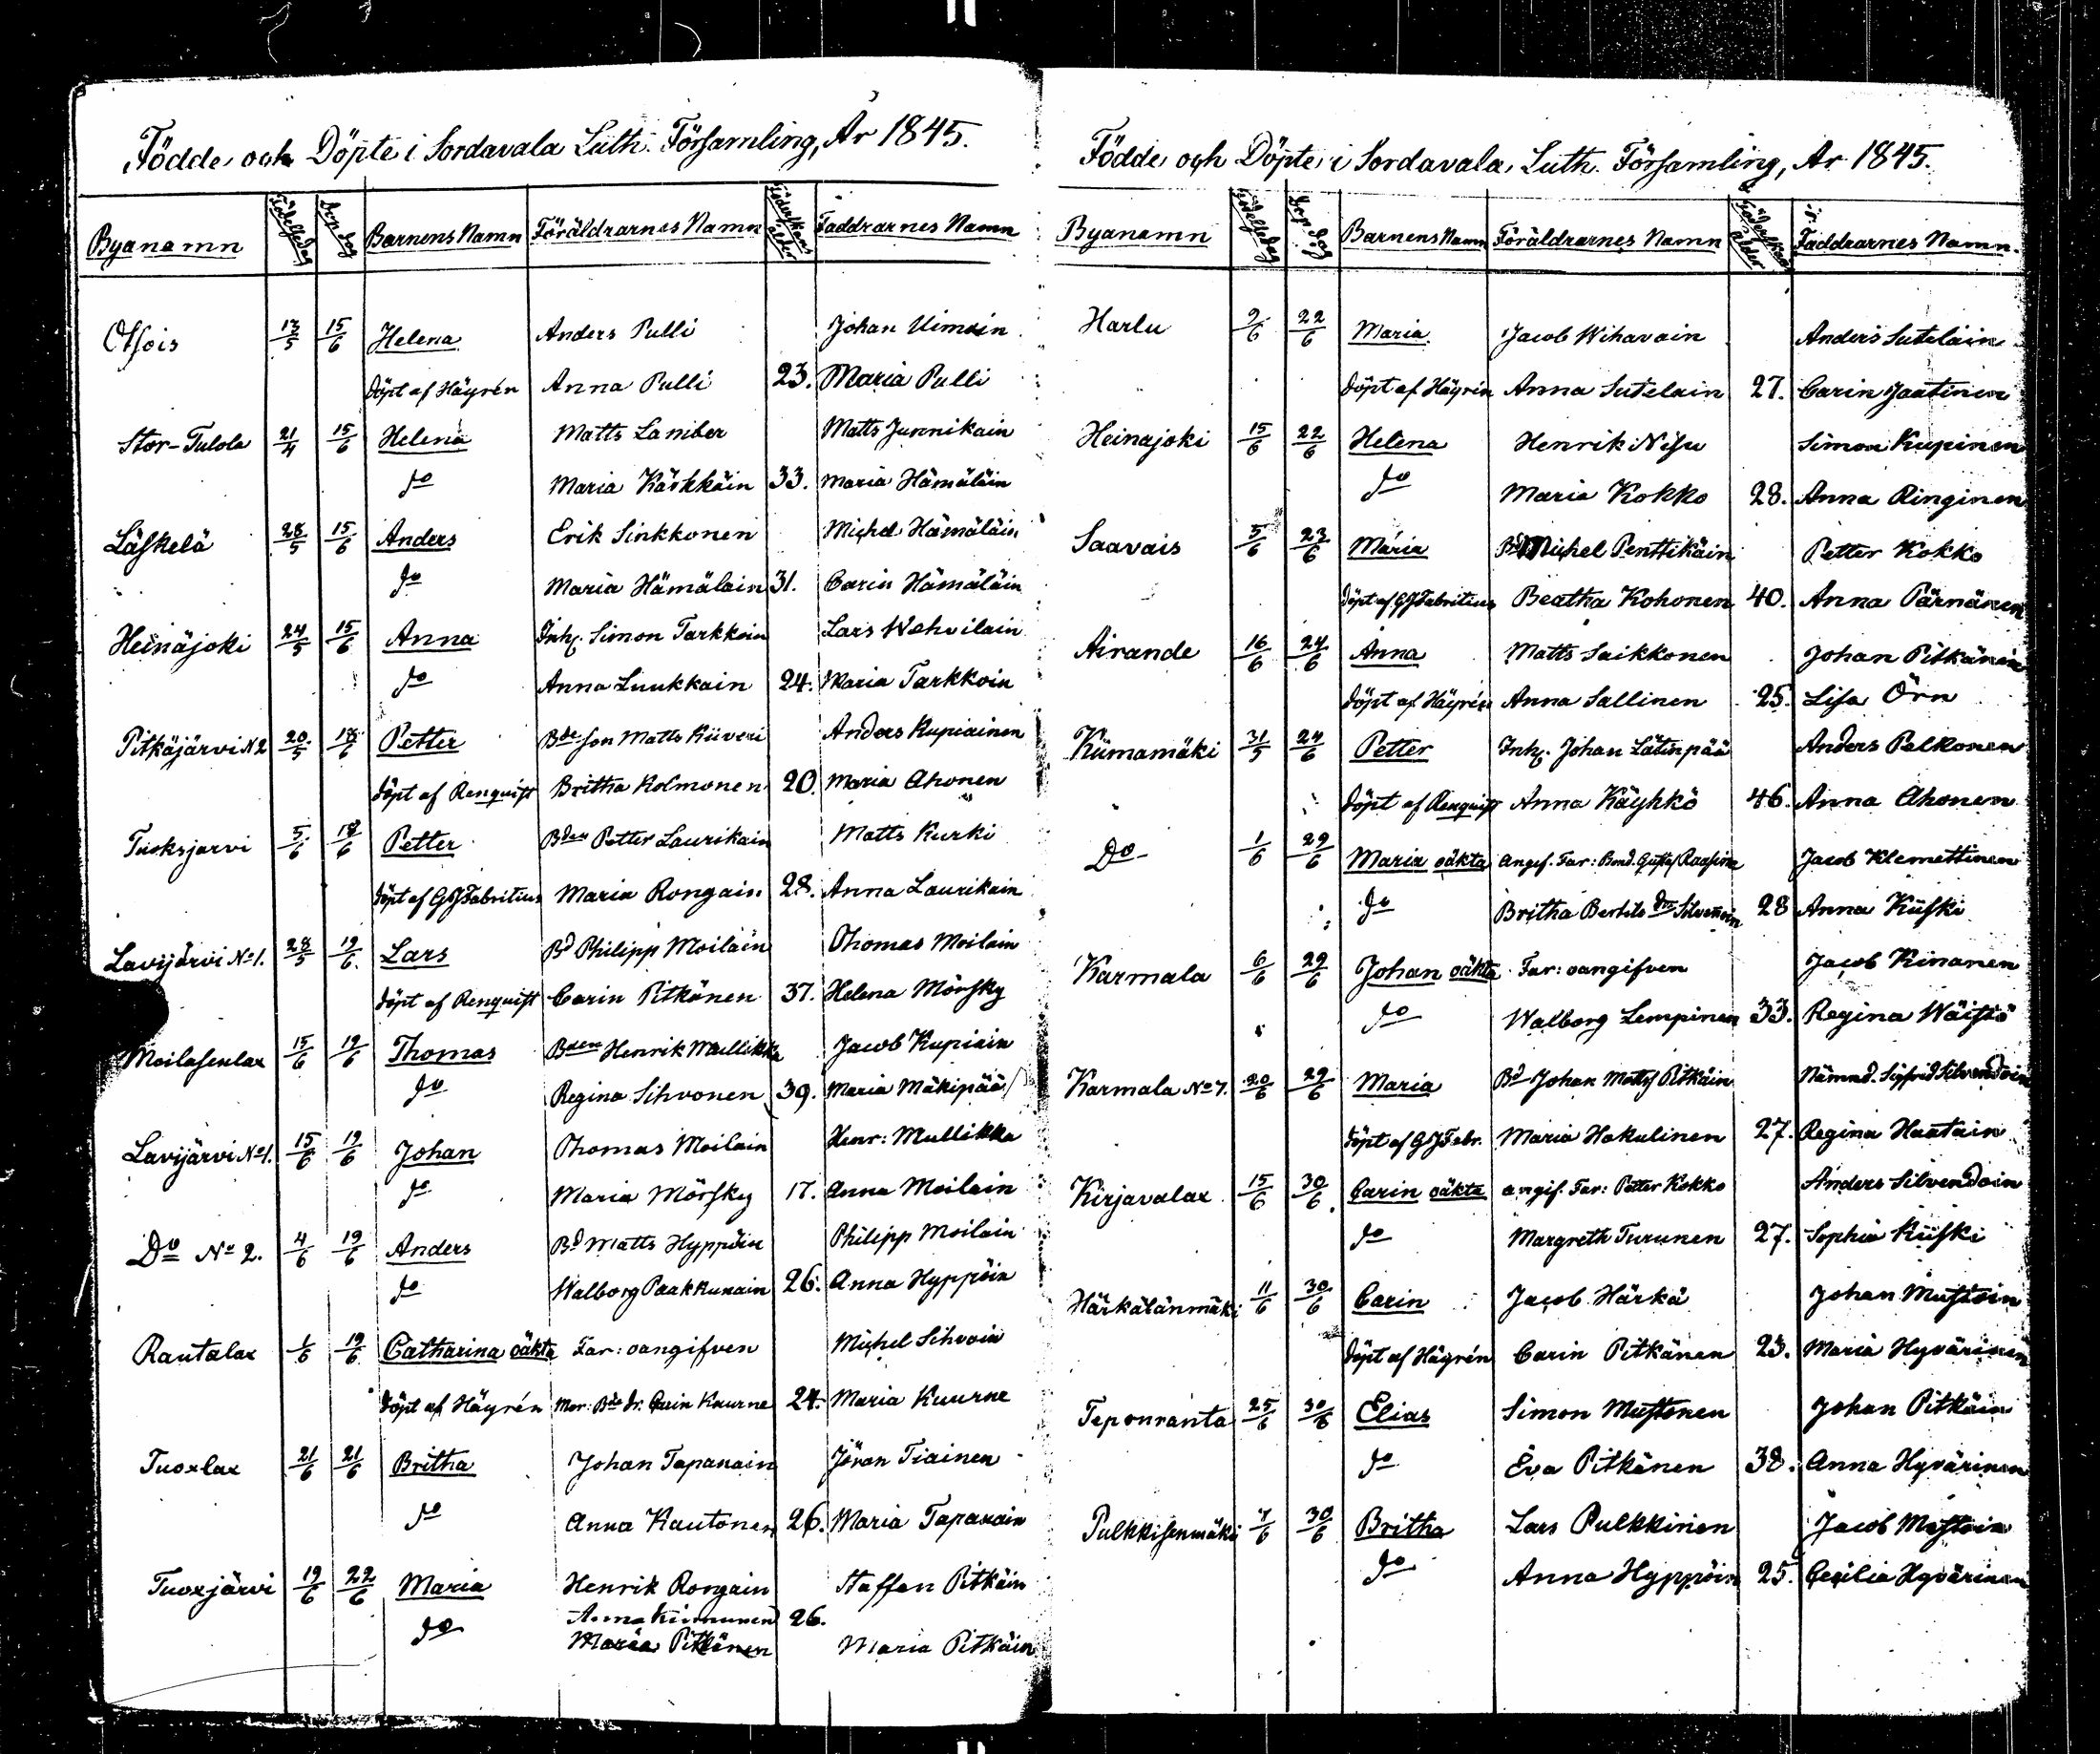 Födde och Döpte i Sordavala Luth. Församling, År 1845.
Byanamn Födelsedag Dop dag Barnens Namn Föräldrarnes Namn Föderskans ålder Faddrarnes Namn
Otsois 13/5 15/6 Helena Anders Pulli Johan Uimoin
döpt af Häyrén Anna Pulli 23. Maria Pulli
Stor-Tulola 21/4 15/6 Helena Matts Lamber Matts Junnikain
do Maria Kärkkäin 33. Maria Hämäläin
Läskelä 28/5 15/6 Anders Erik Sinkkonen Michel Hämäläin
do Maria Hämälain 31. Carin Hämäläin
Heinäjoki 24/5 15/6 Anna Inh. Simon Tarkkoin Lars Wehvilain
do Anna Luukkain 24. Maria Tarkkoin
Pitkäjärvi N2 20/5 18/6 Petter Bde son Matts Kiiveri Anders Kupiainen
döpt af Renquist Britha Kolmonen 20. Maria Ahonen
Tuoksjarvi 5/6 18/6 Petter Bden Petter Laurikain Matts Kurki
döpt af GJFabritius Maria Rongain 28. Anna Laurikain
Lavijärvi No 1. 28/5 19/6. Lars Bd Philipp Moiläin Thomas Moilain
döpt af Renquist Carin Pitkänen 37. Helena Mörsky
Moilasenlax 15/6 19/6 Thomas Bden Henrik Mullikka Jacob Kupiain
do Regina Sihvonen 39. Maria Mäkipää
Lavijärvi No 1. 15/6 19/6 Johan Thomas Moilain Henr: Mullikka
do Maria Mörsky 17. Anna Moilain
Do No 2. 4/6 19/6 Anders Bd Matts Hyppöin Philipp Moilain
do Walborg Paakkunain 26. Anna Hyppöin
Rautalax 1/6 19/6 Catharina oäkta Far: oangifven Michel Sihvoin
döpt af Häyrén Mor: Bde dr. Carin Kuurne 24. Maria Kuurne
Tuoxlax 21/6 21/6 Britha Johan Tapanain Jöran Tiainen
do Anna Kautonen 26. Maria Tapanain
Tuoxjärvi 19/6 22/6 Maria Henrik Rongain Staffan Pitkäin
do Anna Kinnunen 26.
Maria Pitkänen Maria Pitkäin
Födde och Döpte i Sordavala Luth. Församling, År 1845.
Byanamn Födelsedag Dop dag Barnens Namn Föräldrarnes Namn Föderskans ålder Faddrarnes Namn.
Harlu 9/6 22/6 Maria Jacob Wihavain Anders Sutelain
döpt af Häyrén Anna Sutelain 27. Carin Jaatinen
Heinajoki 15/6 22/6 Helena Henrik Nisu Simon Kupinen
do Maria Kokko 28. Anna Ringinen
Saavais 5/6 23/6 Maria Bd Michel Penttikäin Petter Kokko
döpt af GJFabritius Beatha Kohonen 40. Anna Pärnänen
Airande 16/6 24/6 Anna Matts Saikkonen Johan Pitkänen
döpt af Häyrén Anna Sallinen 25. Lisa Örn
Kiimamäki 31/5 24/6 Petter Inh. Johan Lätinpää Anders Pelkonen
döpt af Renquist Anna Käyhkö 46. Anna Ahonen
Do 1/6 29/6 Maria oäkta Angif. Far: Bond. Gustaf Raasina Jacob Klemettinen
do Britha Bertils dr Silvennoin 28 Anna Kiiski
Karmala 6/6 29/6 Johan oäkta Far: oangifven Jacob Kinanen
do Walborg Lempinen 33. Regina Wäistö
Karmala No 7. 20/6 29/6 Maria Bd Johan Mattss Pitkäin Nämnd. Sigfrid Silvendoin
döpt af GJFabr. Maria Hakulinen 27. Regina Haatain
Kirjavalax 15/6 30/6. Carin oäkta angif. Far: Petter Kokko Anders Silvendoin
do Margreth Turunen 27. Sophia Kiiski
Härkälänmäki 11/6 30/6 Carin Jacob Härkä Johan Mustoin
döpt af Häyrén Carin Pitkänen 23. Maria Hyvärinen
Teponranta 25/6 30/6 Elias Simon Mustonen Johan Pitkäin
do Eva Pitkänen 38. Anna Hyvärinen
Pulkkisenmäki 7/6 30/6 Britha Lars Pulkkinen Jacob Mustoin
do Anna Hyppöin 25. Cecilia Hyvärinen